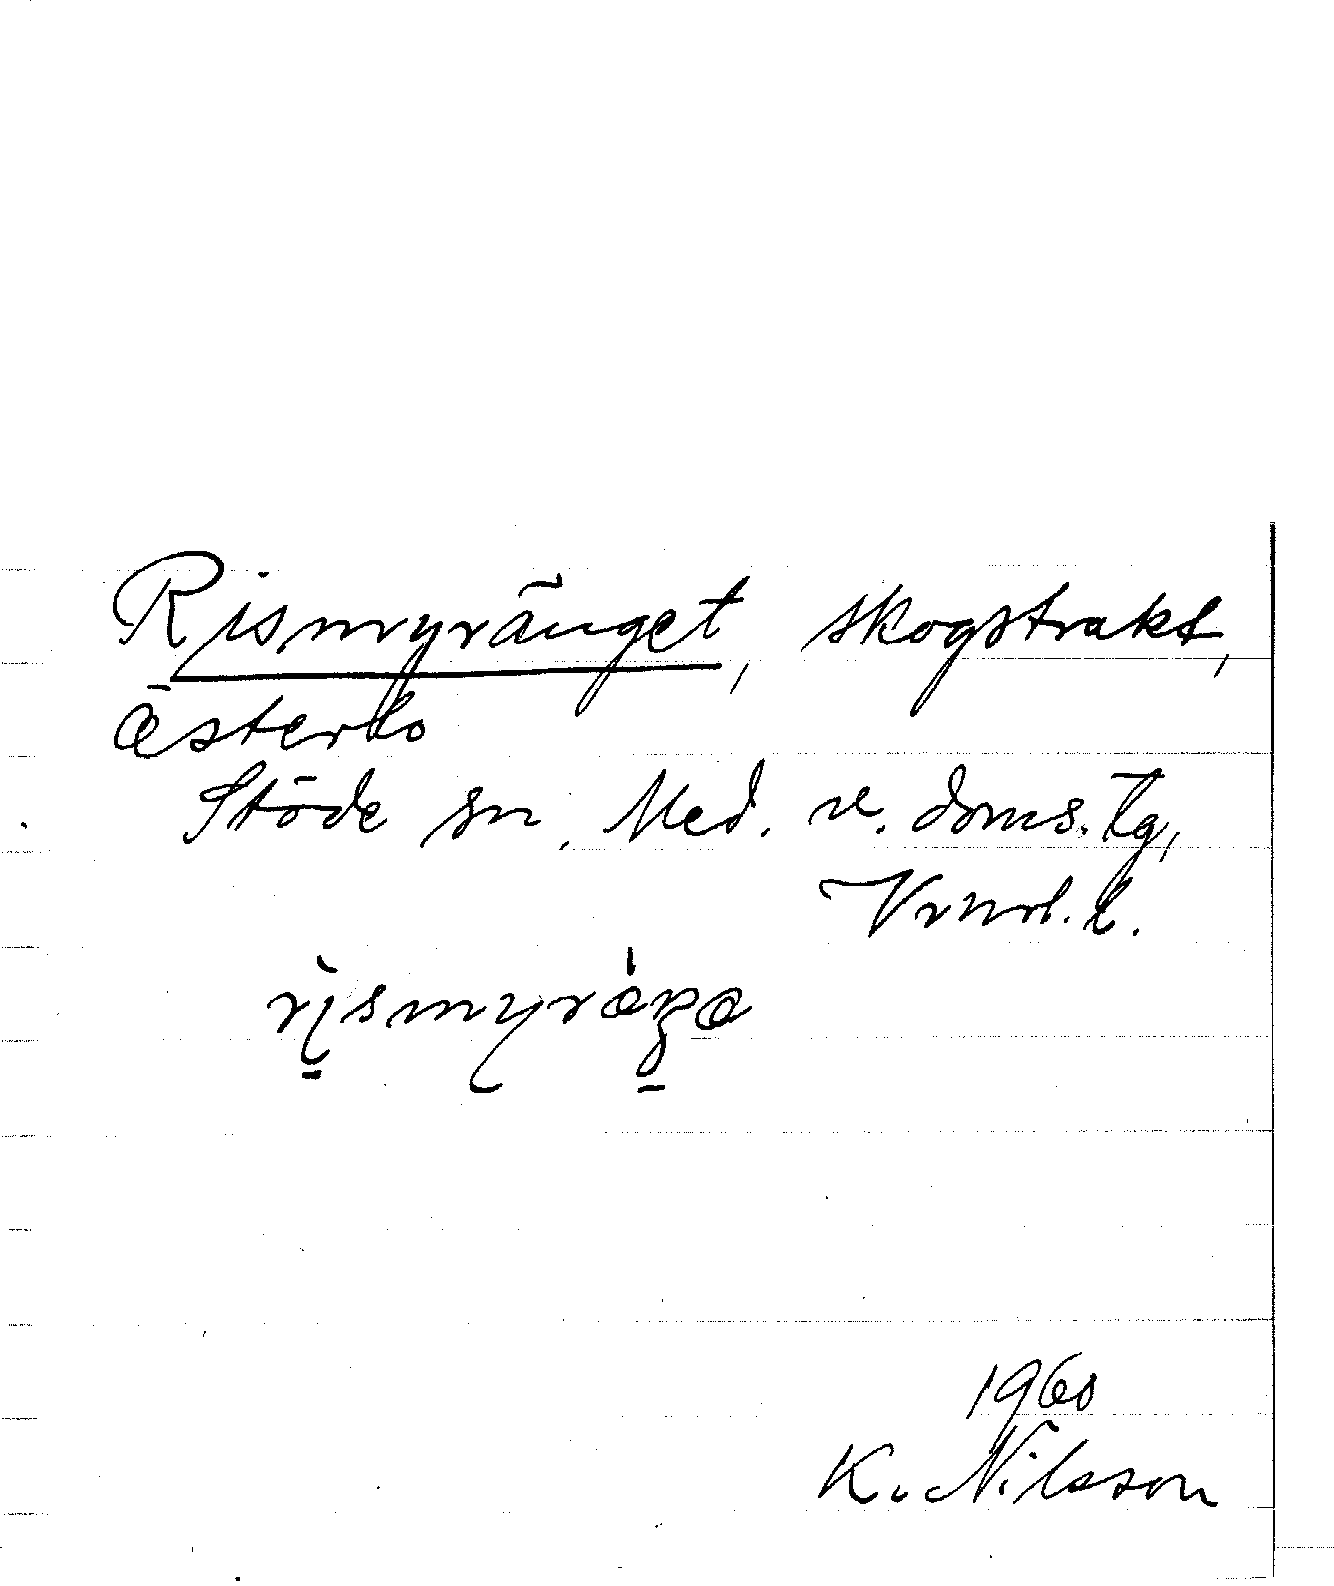 Rismyränget, skogstrakt,
Österlo
Stöde sn, Med. v. doms. tg,
Vrnrl. l.
1960
K. Nilsson